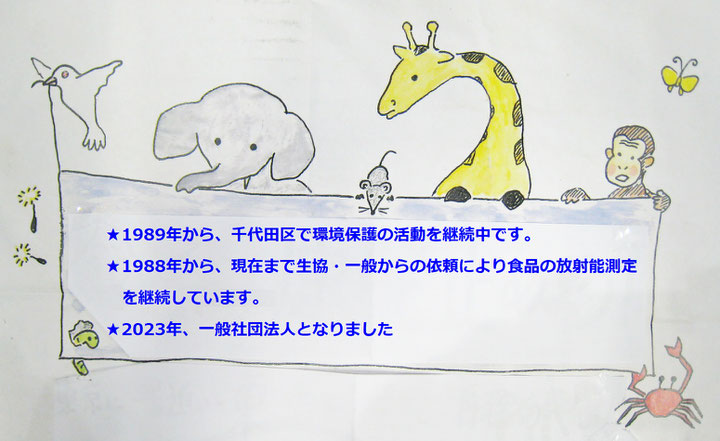 ★1989年から、千代田区で環境保護の活動を継続中です。
★1988年から、現在まで生協・一般からの依頼により食品の放射能測定
を継続しています。
★2023年、一般社団法人となりました